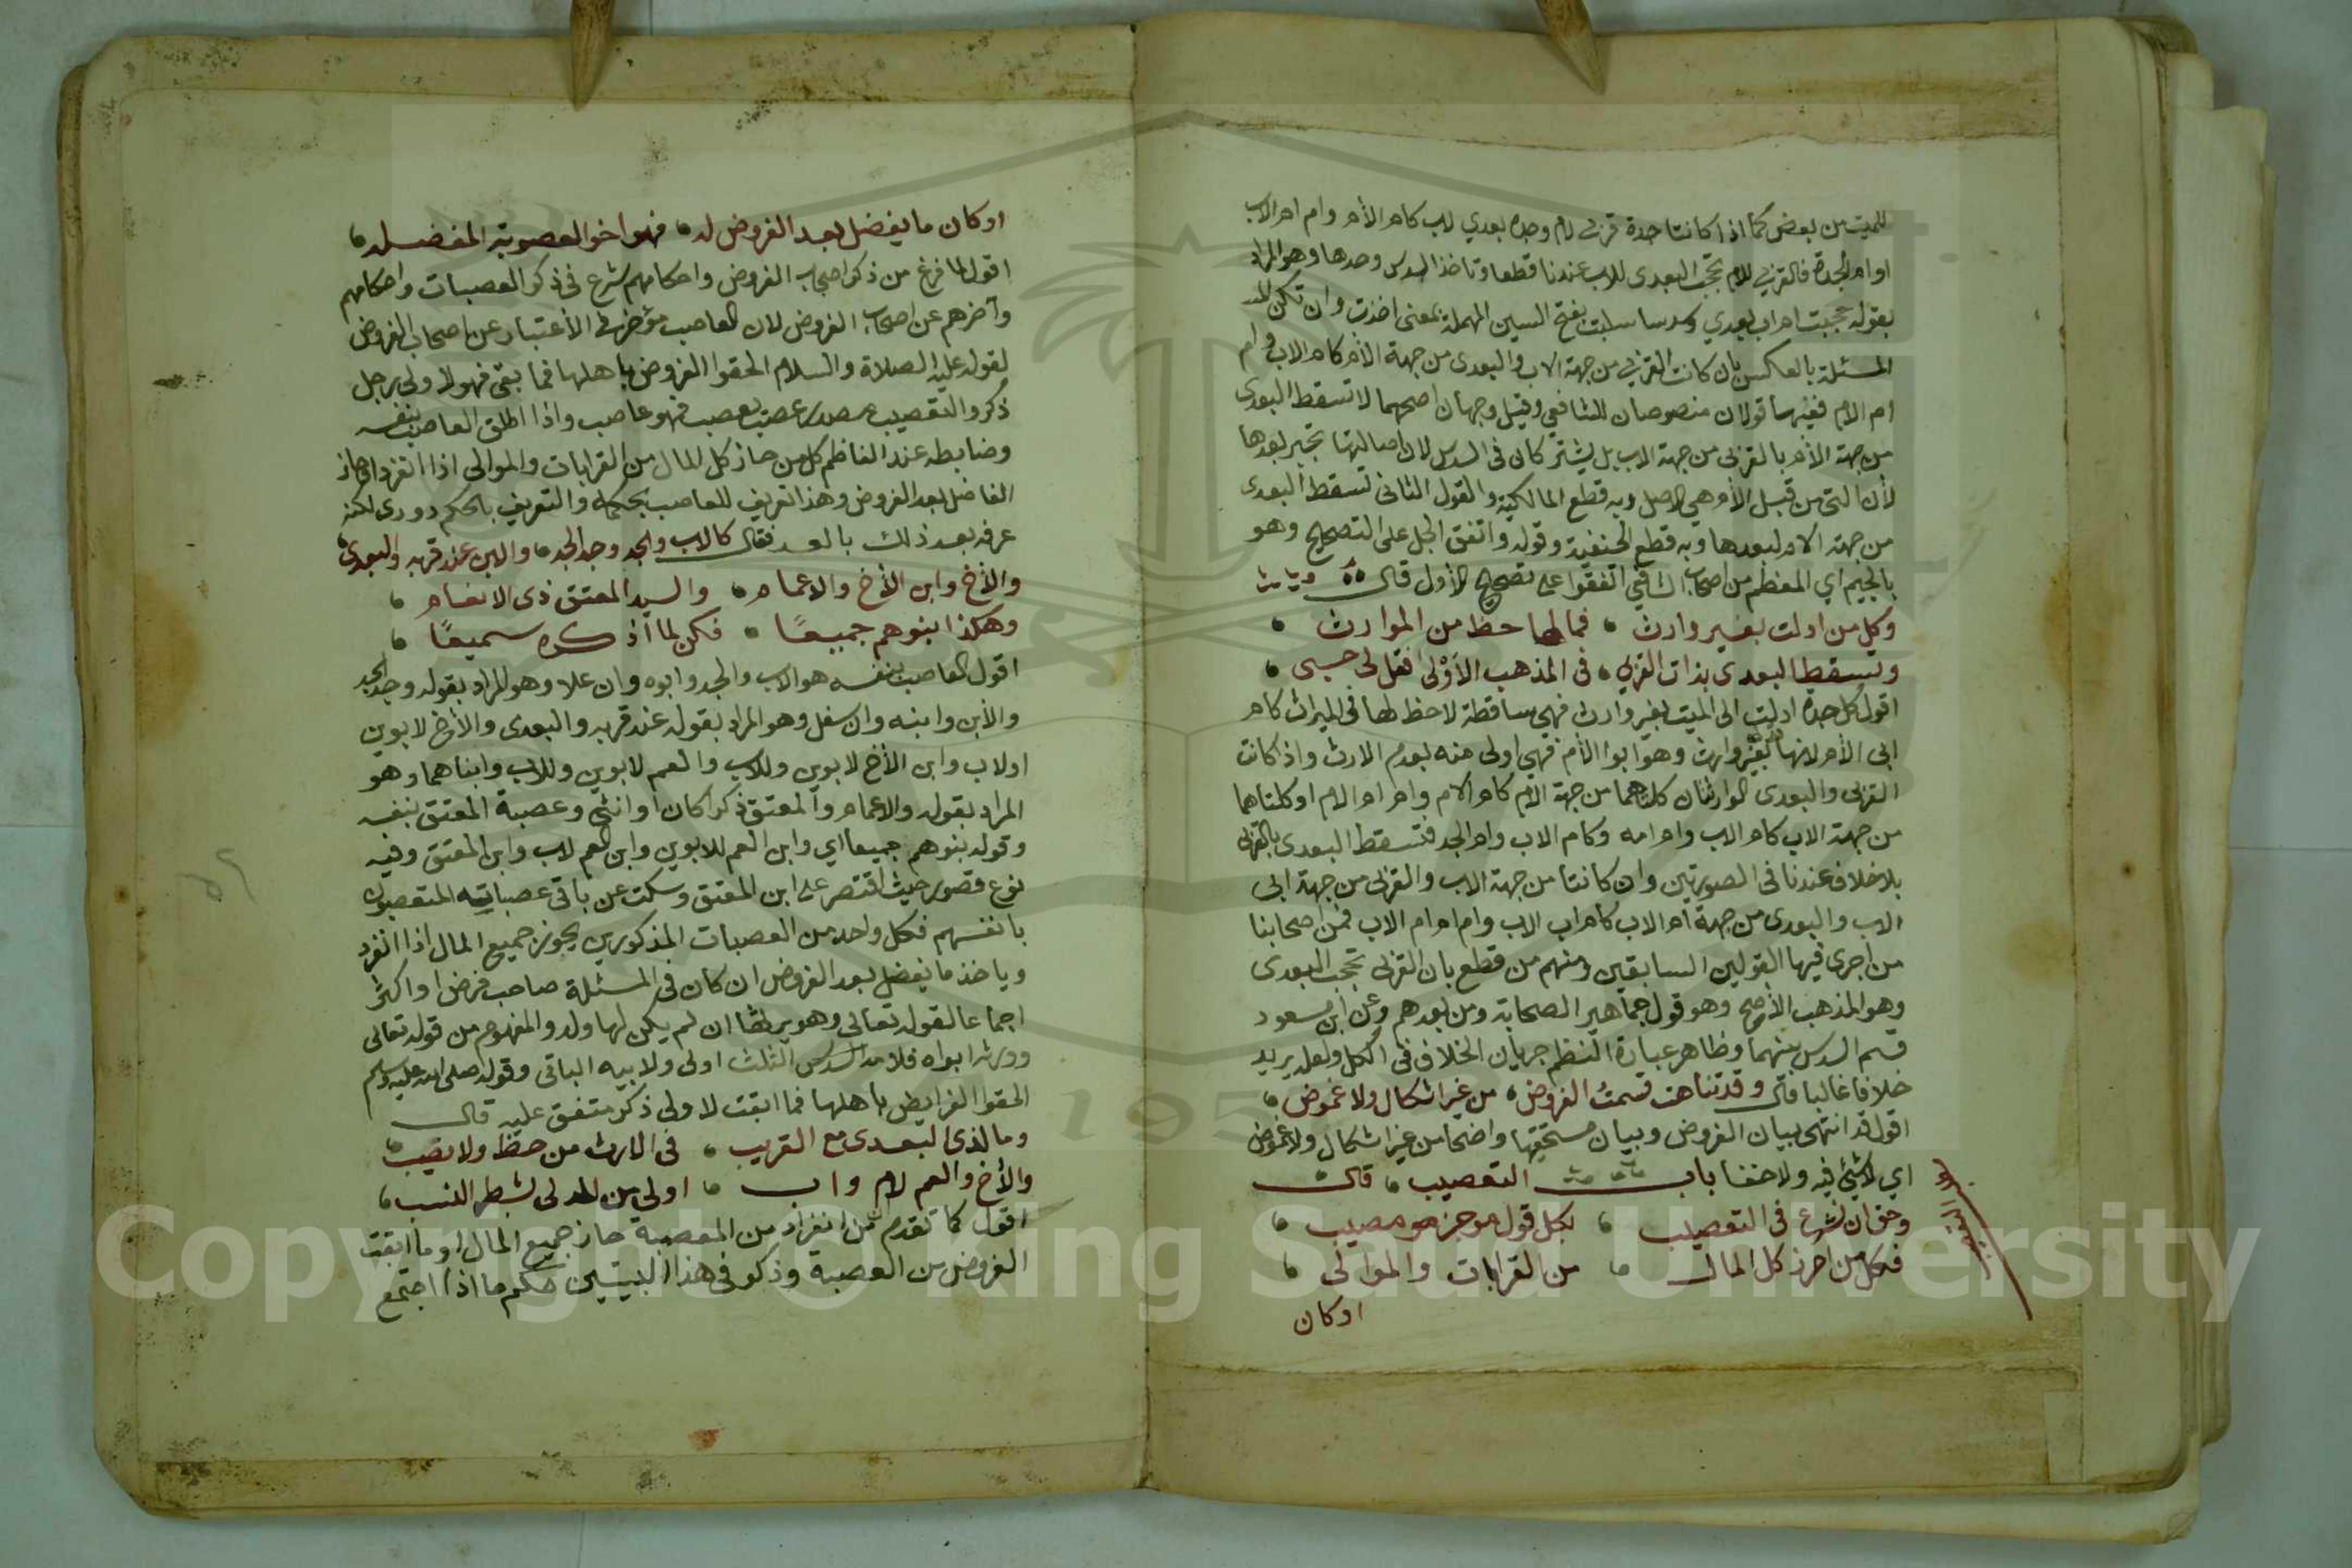 للميت من بعض كما اذا كانتا جدة قربى لام وجدة بعدي لاب كام الأم وام ام الاب
او ام الجد فالقربى للام تحجب البعدى للاب عندنا قطعا وتاخذ السدس وحدها وهو المراد
بقوله حجبت ام اب بعدي وسدسا سلبت بفتح السين المهملة بمعنى اخذت وان تكن
المسئلة بالعكس بان كانت القربى من جهة الاب والبعدى من جهة الأم كام الاب وام
ام الام ففيها قولان منصوصان للشافعي وقيل وجهان اصحهما لا تسقط البعدى
من جهة الأم بالقربى من جهة الاب بل يشتركان في السدس لان اصالتها تجبر بعدها
لأن التي من قبل الأم هي الاصل وبه قطع المالكية والقول الثاني تسقط البعدى
من جهة الام لبعدها وبه قطع الحنفية وقوله واتفق الجل على التصحيح وهو
بالجيم اي المعظم من اصحاب الشافعي اتفقوا على تصحيح الأول قال
وكل من ادلت بغير وارث فمالها حظ من الموارث
وتسقط البعدى بذات القرب في المذهب الأولى فقل لي حسبي
اقول كل جدة ادلت الى الميت بغير وارث فهي ساقطة لاحظ لها في الميراث كام
ابي الأم لانها بغير وارث وهو ابوا الأم فهي اولى منه بعدم الارث واذ كانت
القربى والبعدى الوارثتان كلتاهما من جهة الام كام الام وام ام الام او كلتاهما
من جهة الاب كام الاب وام امه وكام الاب وام الجد فتسقط البعدى بالقربى
بلا خلاف عندنا في الصورتين وان كانتا من جهة الاب والقربى من جهة ابي
الاب والبعدى من جهة ام الاب كام اب الاب وام ام ام الاب فمن اصحابنا
من اجرى فيها القولين السابقين ومنهم من قطع بان القربى تحجب البعدى
وهو المذهب الأصح وهو قول جماهير الصحابة ومن بعدهم وعن ابن مسعود
قسم السدس بينهما وظاهر عبارة النظم جريان الخلاف في الكل ولعله يريد
خلافا غالبا قال وقد تناهت قسمة الفروض من غير اشكال ولا غموض
اقول قد انتهى بيان الفروض وبيان مستحقيها واضحا من غير اشكال ولا غموض
اي لا شيئ فيه ولا خفا باب التعصيب قال
وحق ان نشرع في التعصيب بكل قول موجز مصيب
فكل من احرز كل المال من القرابات والموالي
او كان
باب التعصيب
او كان ما يفضل بعد الفروض له فهو اخو العصوبة المفضله
اقول لما فرغ من ذكر اصحاب الفروض واحكامهم شرع في ذكر العصبات واحكامهم
وآخرهم عن اصحاب الفروض لان العاصب مؤخر في الأعتبار عن اصحاب الفروض
لقوله عليه الصلاة والسلام الحقوا الفروض باهلها فما بقي فهو لاولى رجل
ذكر والتعصيب مصدر عصب يعصب فهو عاصب واذا اطلق العاصب بنفسه
وضابطه عند الناظم كل من حاز كل المال من القرابات والموالي اذا انفرد او حاز
الفاضل بعد الفروض وهذا تعريف للعاصب بحكمه والتعريف بالحكم دوري لكنه
عرفه بعد ذلك بالعد فقال كالاب والجد وجد الجد والابن عند قربه والبعدى
والأخ وابن الأخ والاعمام والسيد المعتق ذى الانعام
وهكذا بنوهم جميعًا فكن لما اذكره سميعًا
اقول العاصب بنفسه هو الاب والجد وابوه وان علا وهو المراد بقوله وجد الجد
والأبن وابنه وان سفل وهو المراد بقوله عند قربه والبعدى والأخ لابوين
او لاب وابن الأخ لابوين وللاب والعم لابوين وللاب وابناهما وهو
المراد بقوله والاعمام والمعتق ذكرا كان او انثى وعصبة المعتق بنفسه
وقوله بنوهم جميعا اي وابن العم للابوين وابن العم لاب وابن المعتق وفيه
نوع قصور حيث اقتصر على ابن المعتق وسكت عن باقي عصباته المتعصبون
بانفسهم فكل واحد من العصبات المذكورين يحوز جميع المال اذا انفرد
وياخذ ما يفضل بعد الفروض ان كان في المسئلة صاحب فرض او اكثر
اجماعا لقوله تعالى وهو يرثها ان لم يكن لها ولد والمفهوم من قوله تعالى
وورثه ابواه فلامه الثلث اولى ولابيه الباقى وقوله صلى الله عليه وسلم
الحقوا الفرايض باهلها فما ابقت لاولى ذكر متفق عليه قال
وما لذى البعدى مع القريب في الارث من حظ ولا نصيب
والأخ والعم لام واب اولى من المدلى بشطر النسب
اقول كما تقدم من انفراد من العصبة حاز جميع المال او ما ابقت
الفروض من العصبة وذكر في هذا البيتين حكم ما اذا اجتمع